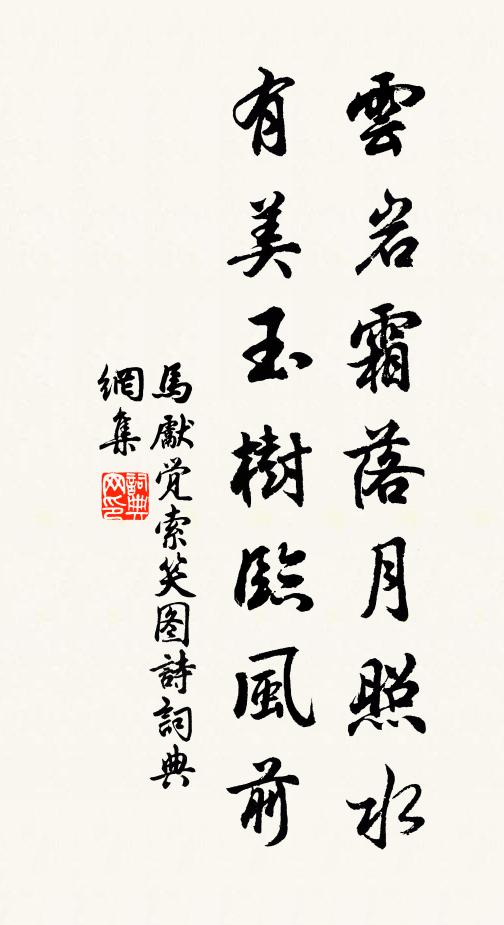 雲岩霜落月照水
有美玉樹臨風前
馬獻觉索笑图詩詞典
網集
詞典
网印